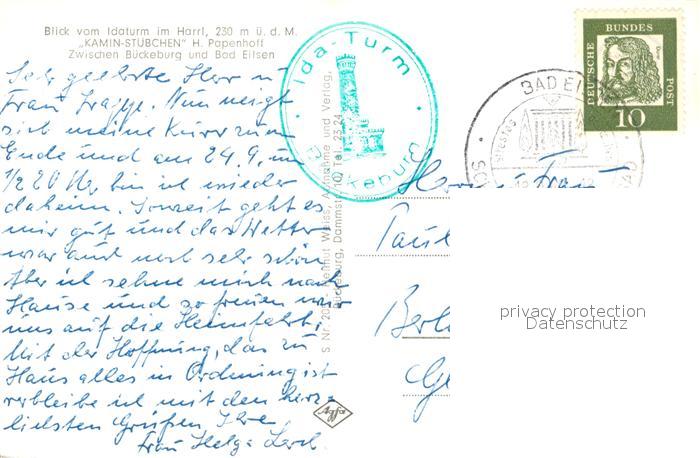 Blick vom Idaturm im Harrl, 230 m ü. d. M.
„KAMIN-STÜBCHEN" H. Papenhoff
Zwischen Bückeburg und Bad Eilsen
Sehr geehrte Herr u
Frau Nun neigt
sich meine Kur zum
Ende und am 24. 9. um
1/2 20 Uhr bin ich wieder
daheim. Soweit geht es
mir gut und das Wetter
war auch noch sehr schön
Aber ich sehne mich nach
Hause und so freuen wir
uns auf die Heimfahrt.
Mit der Hoffnung, das zu
Haus alles in Ordnung ist
verbleibe ich mit den herz-
lichsten Grüßen, Ihre
Frau Helga
Ida-Turm
Bückeburg
S. Nr. Weiss, Aufnahme und Verlag,
Bückeburg, Dammstr. 10, Tel. 23 24
Agfa
DEUTSCHE BUNDES POST
10
BAD EI
Herrn u Frau
Berl
privacy protection
Datenschutz